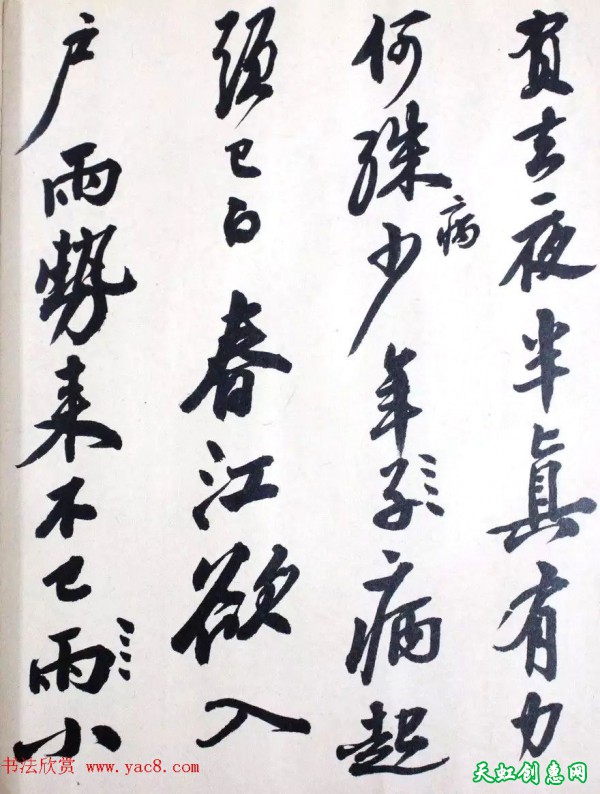 負去夜半真有力
何殊少病年子病起
頭已白春江欲入
戶雨勢來不已雨小
书法欣赏 www.yac8.com
天虹创惠网